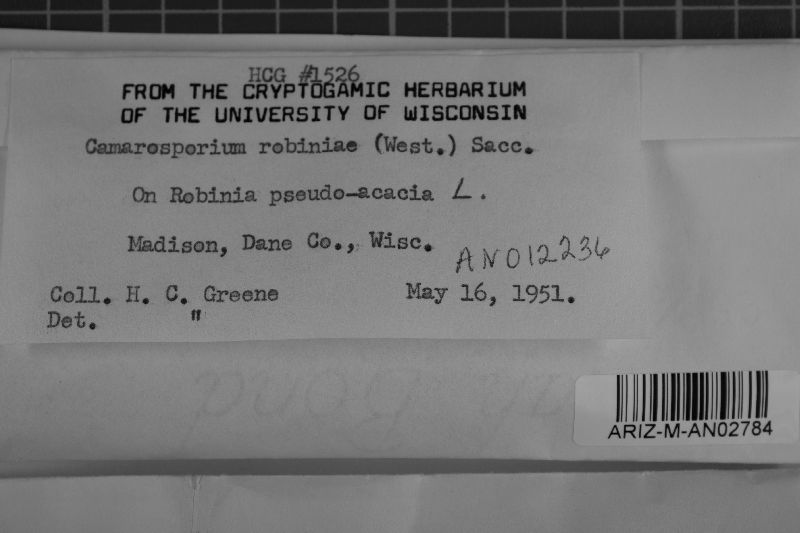 HCG #1526
FROM THE CRYPTOGAMIC HERBARIUM
OF THE UNIVERSITY OF WISCONSIN
Camarosporium robiniae (West.) Sacc.
On Robinia pseudo-acacia L.
Madison, Dane Co., Wisc.
AN012236
Coll. H. C. Greene May 16, 1951.
Det. "
ARIZ-M-AN02784